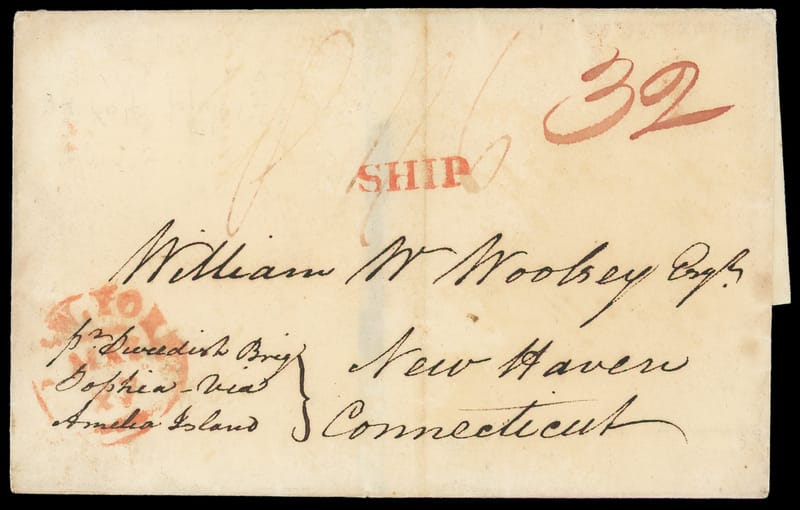 32
SHIP
William W Woolsey Esqr.
New Haven
Connecticut
pr. Swedish Brig
Sophia - Via
Amelia Island
YORK